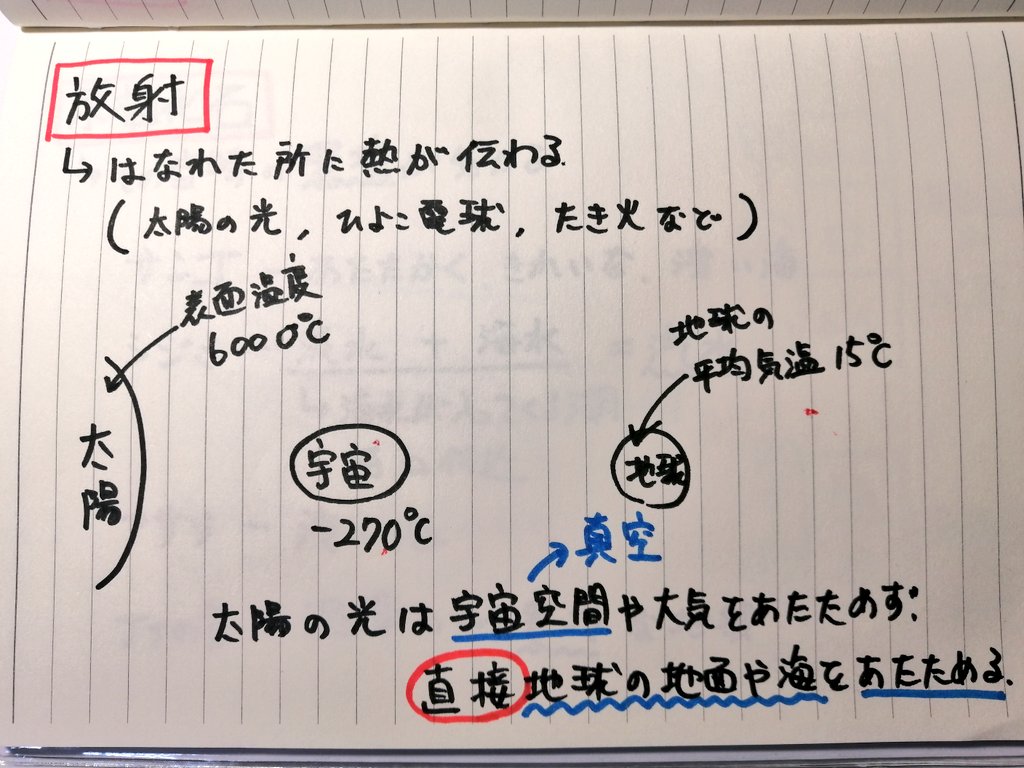 放射
↳はなれた所に熱が伝わる.
(太陽の光, ひよこ電球, たき火など)
表面温度
6000℃
地球の
平均気温 15℃
太陽
宇宙
地球
-270℃
真空
太陽の光は宇宙空間や大気をあたためず:
直接地球の地面や海をあたためる.